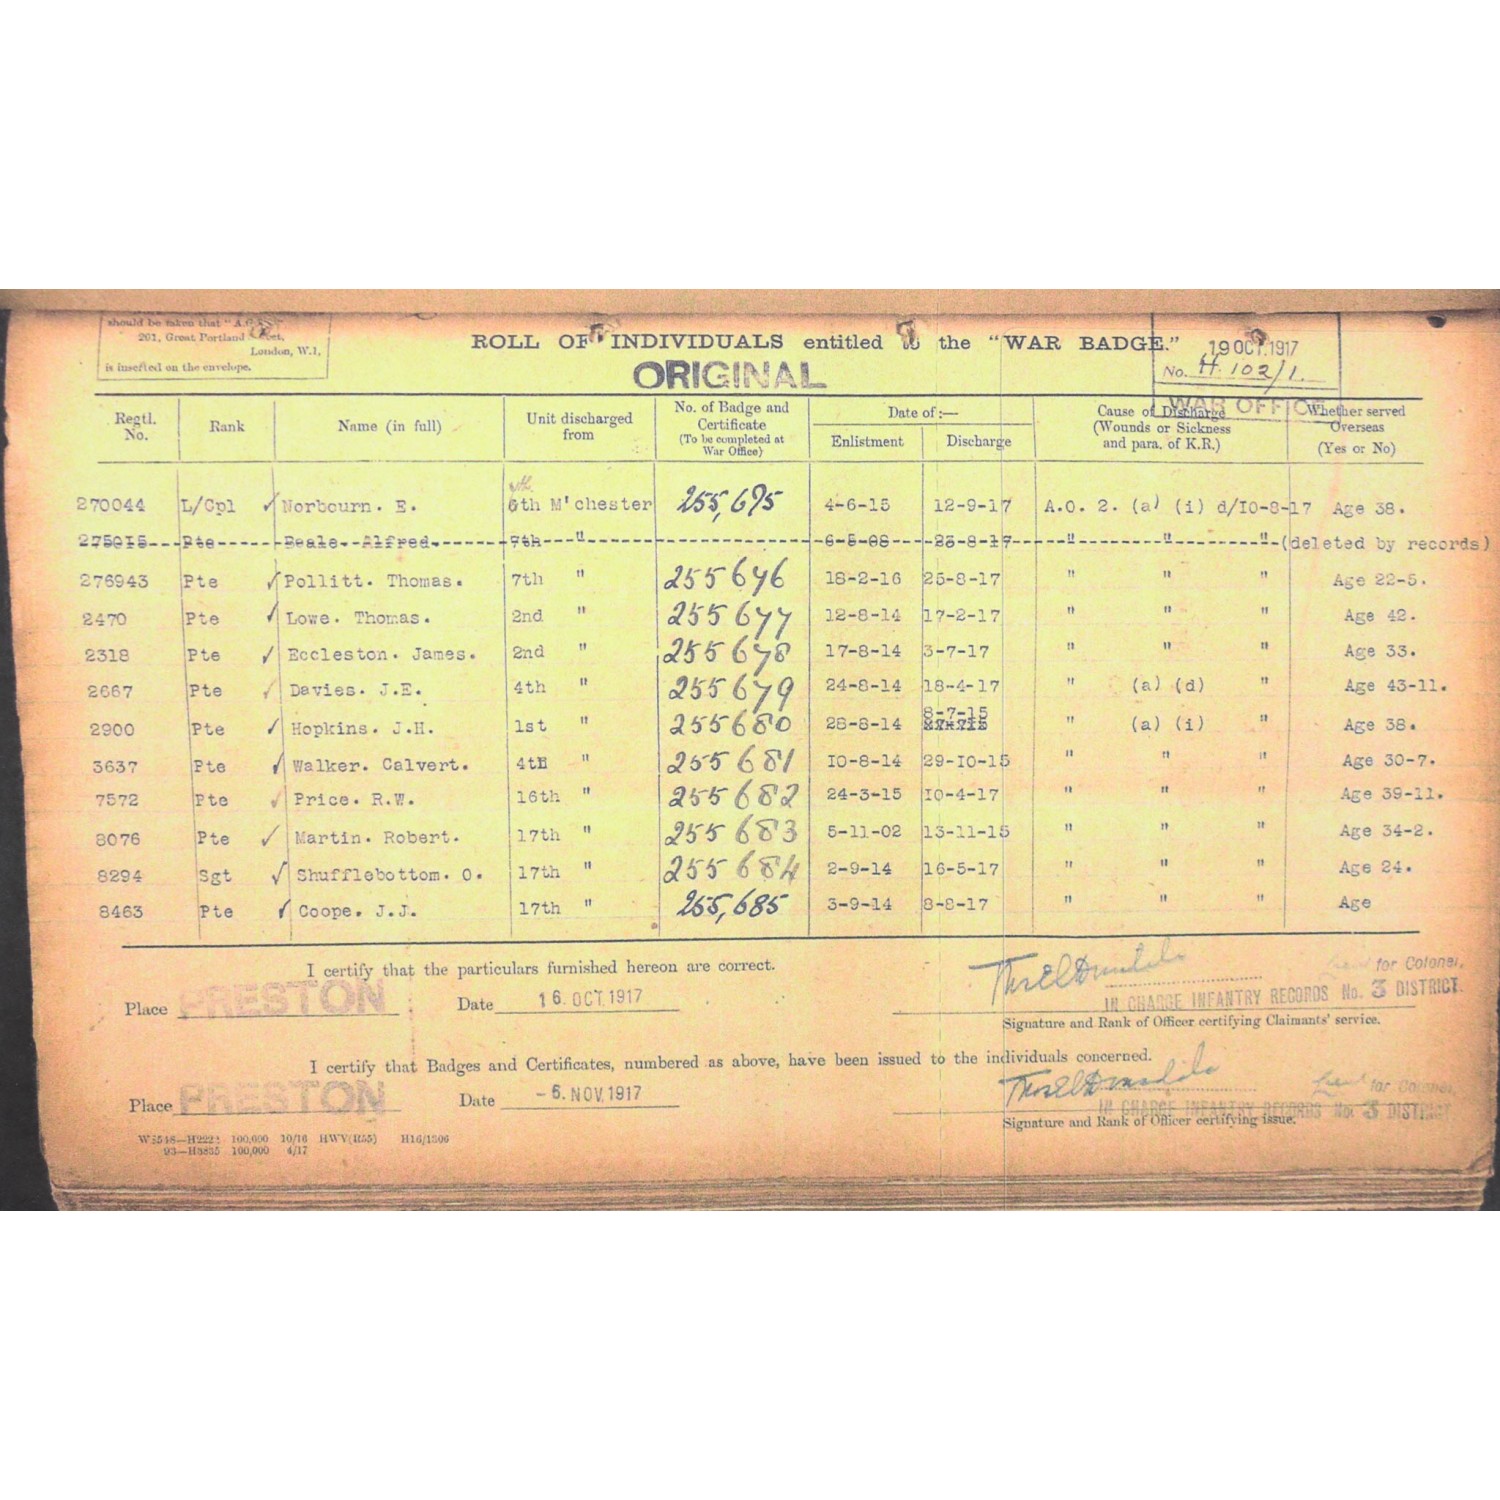 should be taken that "A.G.
201, Great Portland Street,
London, W.1,
is inserted on the envelope.
ROLL OF INDIVIDUALS entitled to the "WAR BADGE."
ORIGINAL
19 OCT. 1917
No. H. 102/1.
WAR OFFICE
Regtl. No. Rank Name (in full) Unit discharged from No. of Badge and Certificate (To be completed at War Office) Date of :— Enlistment Discharge Cause of Discharge (Wounds or Sickness and para. of K.R.) Whether served Overseas (Yes or No)
270044 L/Cpl ✓ Norbourn. E. 6th M'chester 255,675 4-6-15 12-9-17 A.O. 2. (a) (i) d/10-8-17 Age 38.
275015 Pte Beale. Alfred. 7th " 6-5-08 23-8-17 " " " (deleted by records)
276943 Pte ✓ Pollitt. Thomas. 7th " 255676 18-2-16 25-8-17 " " " Age 22-5.
2470 Pte ✓ Lowe. Thomas. 2nd " 255677 12-8-14 17-2-17 " " " Age 42.
2318 Pte ✓ Eccleston. James. 2nd " 255678 17-8-14 3-7-17 " " " Age 33.
2667 Pte ✓ Davies. J.E. 4th " 255679 24-8-14 18-4-17 " (a) (d) " Age 43-11.
2900 Pte ✓ Hopkins. J.H. 1st " 255680 28-8-14 8-7-15 " (a) (i) " Age 38.
3637 Pte ✓ Walker. Calvert. 4th " 255681 10-8-14 29-10-15 " " " Age 30-7.
7572 Pte ✓ Price. R.W. 16th " 255682 24-3-15 10-4-17 " " " Age 39-11.
8076 Pte ✓ Martin. Robert. 17th " 255683 5-11-02 13-11-15 " " " Age 34-2.
8294 Sgt ✓ Shufflebottom. O. 17th " 255684 2-9-14 16-5-17 " " " Age 24.
8463 Pte ✓ Coope. J.J. 17th " 255,685 3-9-14 8-8-17 " " " Age
I certify that the particulars furnished hereon are correct.
Place PRESTON Date 16. OCT. 1917
for Colonel,
IN CHARGE INFANTRY RECORDS No. 3 DISTRICT.
Signature and Rank of Officer certifying Claimants' service.
I certify that Badges and Certificates, numbered as above, have been issued to the individuals concerned.
Place PRESTON Date -6. NOV. 1917
for Colonel,
IN CHARGE INFANTRY RECORDS No. 3 DISTRICT
Signature and Rank of Officer certifying issue.
100,000 10/16 HWV(R55) H16/1306
93—H3835 100,000 4/17